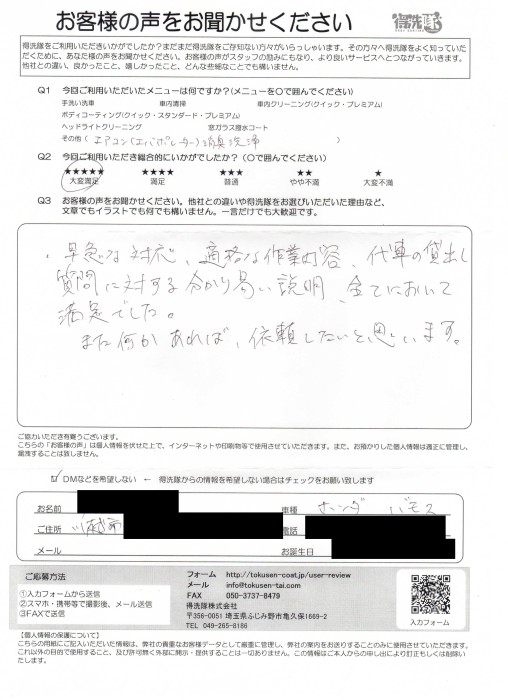 お客様の声をお聞かせください
得洗隊
得洗隊をご利用いただきいかがでしたか？まだまだ得洗隊をご存知ない方々がいらっしゃいます。その方々へ得洗隊をよく知っていた
だくために、あなた様の声をお聞かせください。お客様の声がスタッフの励みにもなり、より良いサービスへとつながっていきます。
他社との違い、良かったこと、嬉しかったこと、どんな些細なことでも構いません。
Q1 今回ご利用いただいたメニューは何ですか？（メニューを○で囲んでください）
手洗い洗車 車内清掃 車内クリーニング（クイック・プレミアム）
ボディコーティング（クイック・スタンダード・プレミアム）
ヘッドライトクリーニング 窓ガラス撥水コート
その他（エアコン（エバポレーター）消臭洗浄）
Q2 今回ご利用いただき総合的にいかがでしたか？（○で囲んでください）
★★★★★ ★★★★ ★★★ ★★ ★
大変満足 満足 普通 やや不満 大変不満
Q3 お客様の声をお聞かせください。他社との違いや得洗隊をお選びいただいた理由など、
文章でもイラストでも何でも構いません。一言だけでも大歓迎です。
・早急な対応、適格な作業内容、代車の貸出し
質問に対する分かり易い説明、全てにおいて
満足でした。
また何かあれば、依頼したいと思います。
ご協力いただき有難うございます。
こちらの「お客様の声」は個人情報を伏せた上で、インターネットや印刷物等で使用させていただきます。また、お預かりした個人情報は適正に管理し、
漏洩することは致しません。
DMなどを希望しない ← 得洗隊からの情報を希望しない場合はチェックをお願い致します
お名前 車種 ホンダ バモス
ご住所 川越市 電話
メール お誕生日
ご応募方法
①入力フォームから送信
②スマホ・携帯等で撮影後、メール送信
③FAXで送信
フォーム http://tokusen-coat.jp/user-review
メール info@tokusen-tai.com
FAX 050-3737-8479
得洗隊株式会社
〒356-0051 埼玉県ふじみ野市亀久保1669-2
TEL 049-265-8186
入力フォーム
【個人情報の保護について】
こちらの用紙にご記入いただいた情報は、弊社の貴重なお客様データとして厳重に管理し、弊社の案内をお送りすることのみに使用させていただきます。
これ以外の目的で使用すること、及び許可無く外部に開示・提供することは一切ありません。この情報はご本人からの申し出により訂正もしくは削除い
たします。